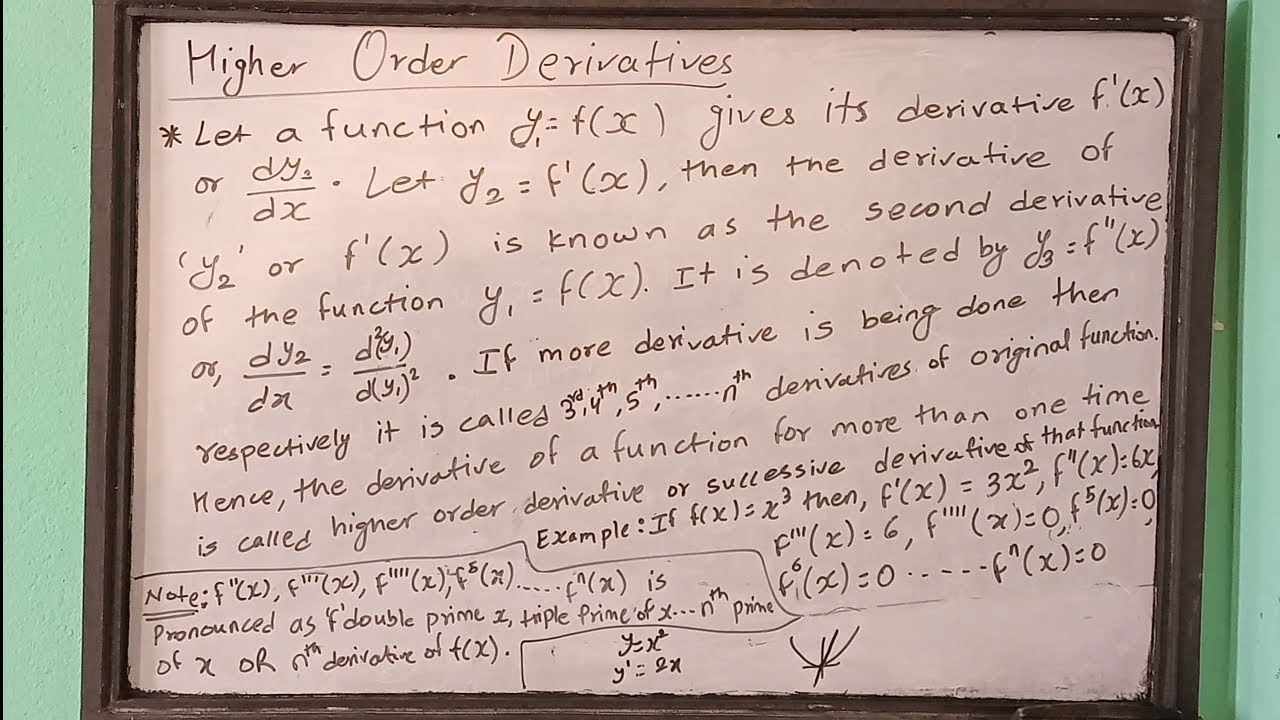 Higher Order Derivatives
* Let a function y₁ = f(x) gives its derivative f'(x)
or dy₂/dx . Let y₂ = f'(x), then the derivative of
'y₂' or f'(x) is known as the second derivative
of the function y₁ = f(x). It is denoted by y₃ = f''(x)
or, dy₂/dx = d²(y₁)/d(y₁)² . If more derivative is being done then
respectively it is called 3rd, 4th, 5th, ...... nth derivatives of original function.
Hence, the derivative of a function for more than one time
is called higher order derivative or successive derivative of that function
Example: If f(x) = x³ then, f'(x) = 3x², f''(x) = 6x,
f'''(x) = 6, f''''(x) = 0, f⁵(x) = 0,
f⁶(x) = 0 ...... fⁿ(x) = 0
Note: f''(x), f'''(x), f''''(x), f⁵(x) ...... fⁿ(x) is
Pronounced as 'f' double prime x, triple Prime of x... nth prime
of x OR nth derivative of f(x).
y = x²
y' = 2x